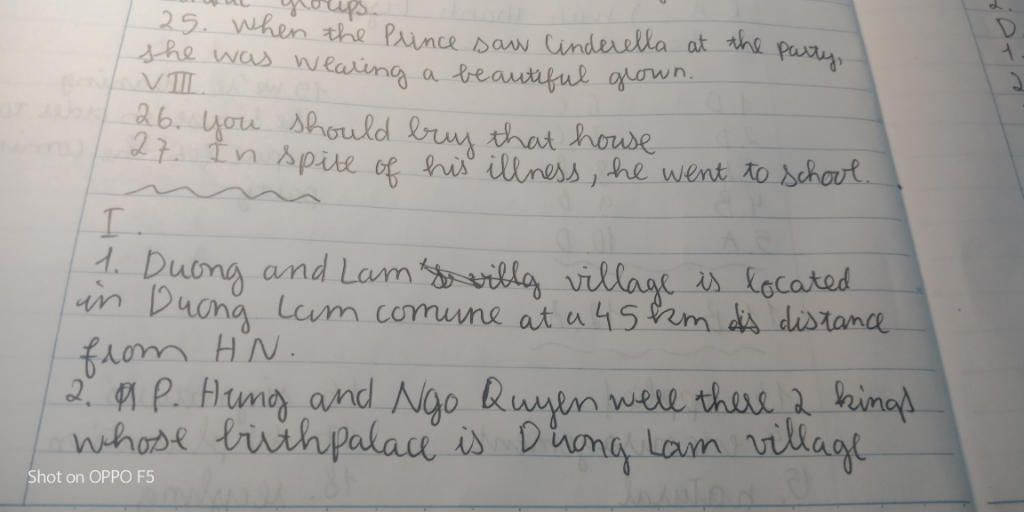 groups.
25. When the Prince saw Cinderella at the party,
she was wearing a beautiful grown.
VIII.
26. you should bruy that house
27. In spite of his illness, he went to school.
I.
1. Duong and Lam village is located
in Duong Lam comune at a 45 km dis distance
from HN.
2. P. Hung and Ngo Quyen were there 2 kings
whose birthpalace is Duong Lam village
Shot on OPPO F5
D
1.
2